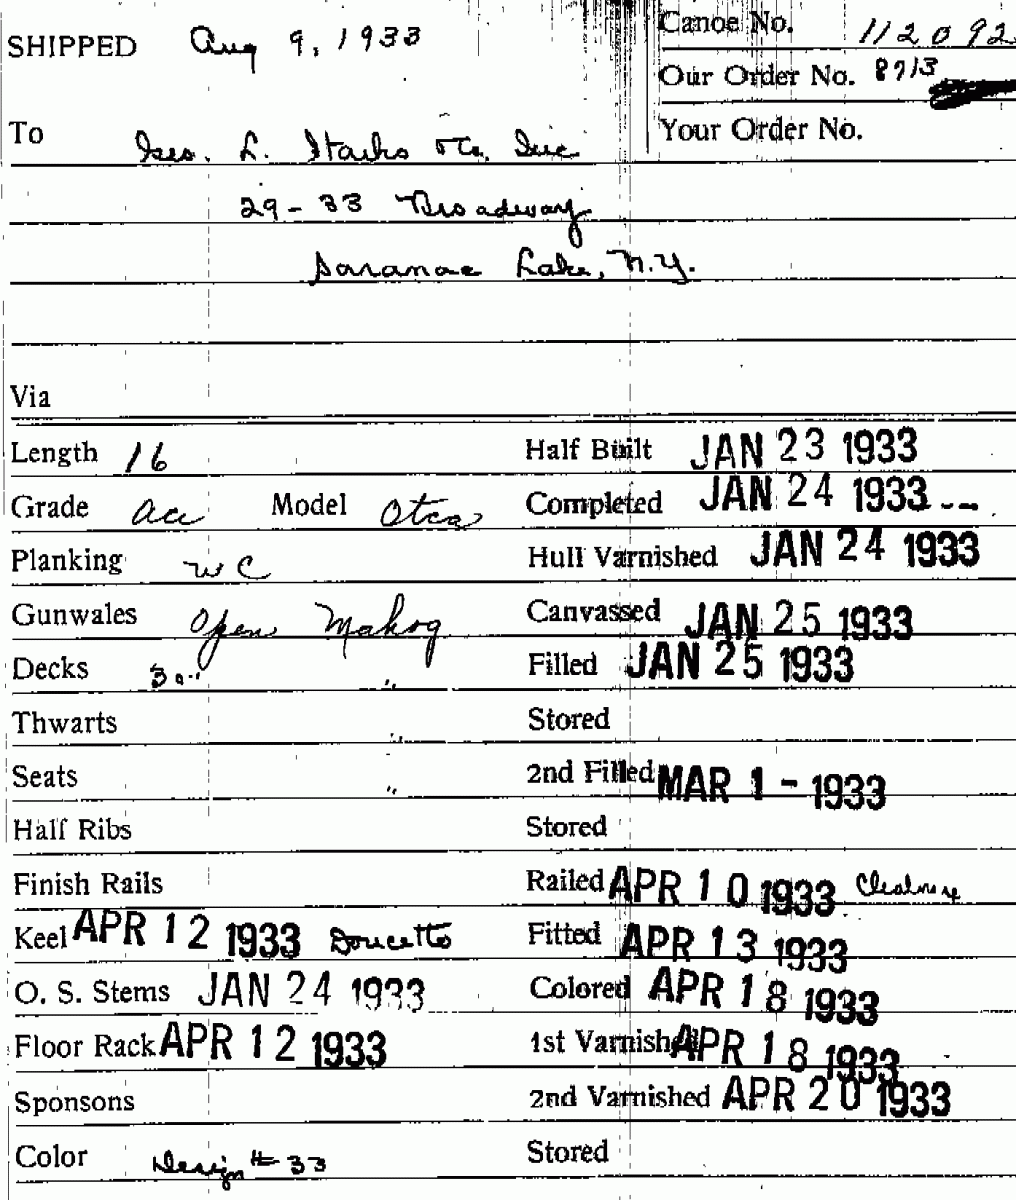 SHIPPED Aug 9, 1933
Canoe No. 112092
Our Order No. 8713
To Geo. L. Starks & Co. Inc
Your Order No.
29-33 Broadway
Saranac Lake, N.Y.
Via
Length 16 Half Built JAN 23 1933
Grade aa Model Otca Completed JAN 24 1933
Planking WC Hull Varnished JAN 24 1933
Gunwales Open Mahog Canvassed JAN 25 1933
Decks 30" " Filled JAN 25 1933
Thwarts " Stored
Seats " 2nd Filled MAR 1 - 1933
Half Ribs Stored
Finish Rails Railed APR 10 1933
Keel APR 12 1933 Doucette Fitted APR 13 1933
O. S. Stems JAN 24 1933 Colored APR 18 1933
Floor Rack APR 12 1933 1st Varnished APR 18 1933
Sponsons 2nd Varnished APR 20 1933
Color Design # 33 Stored